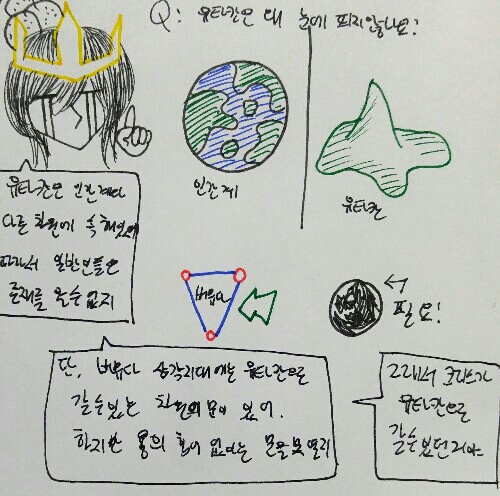 Q: 유타칸은 왜 눈에 띄지않나요?
인간계
유타칸
유타칸은 인간계와
다른 차원에 속해있어
따라서 일반인들은
존재를 알수 없지
버뮤다
필요!
단, 버뮤다 삼각지대에는 유타칸으로
갈수있는 차원의 문이 있어.
하지만 용의 힘이 없다는 문을 못 열지
그래서
유타칸으로
갈수있던거야